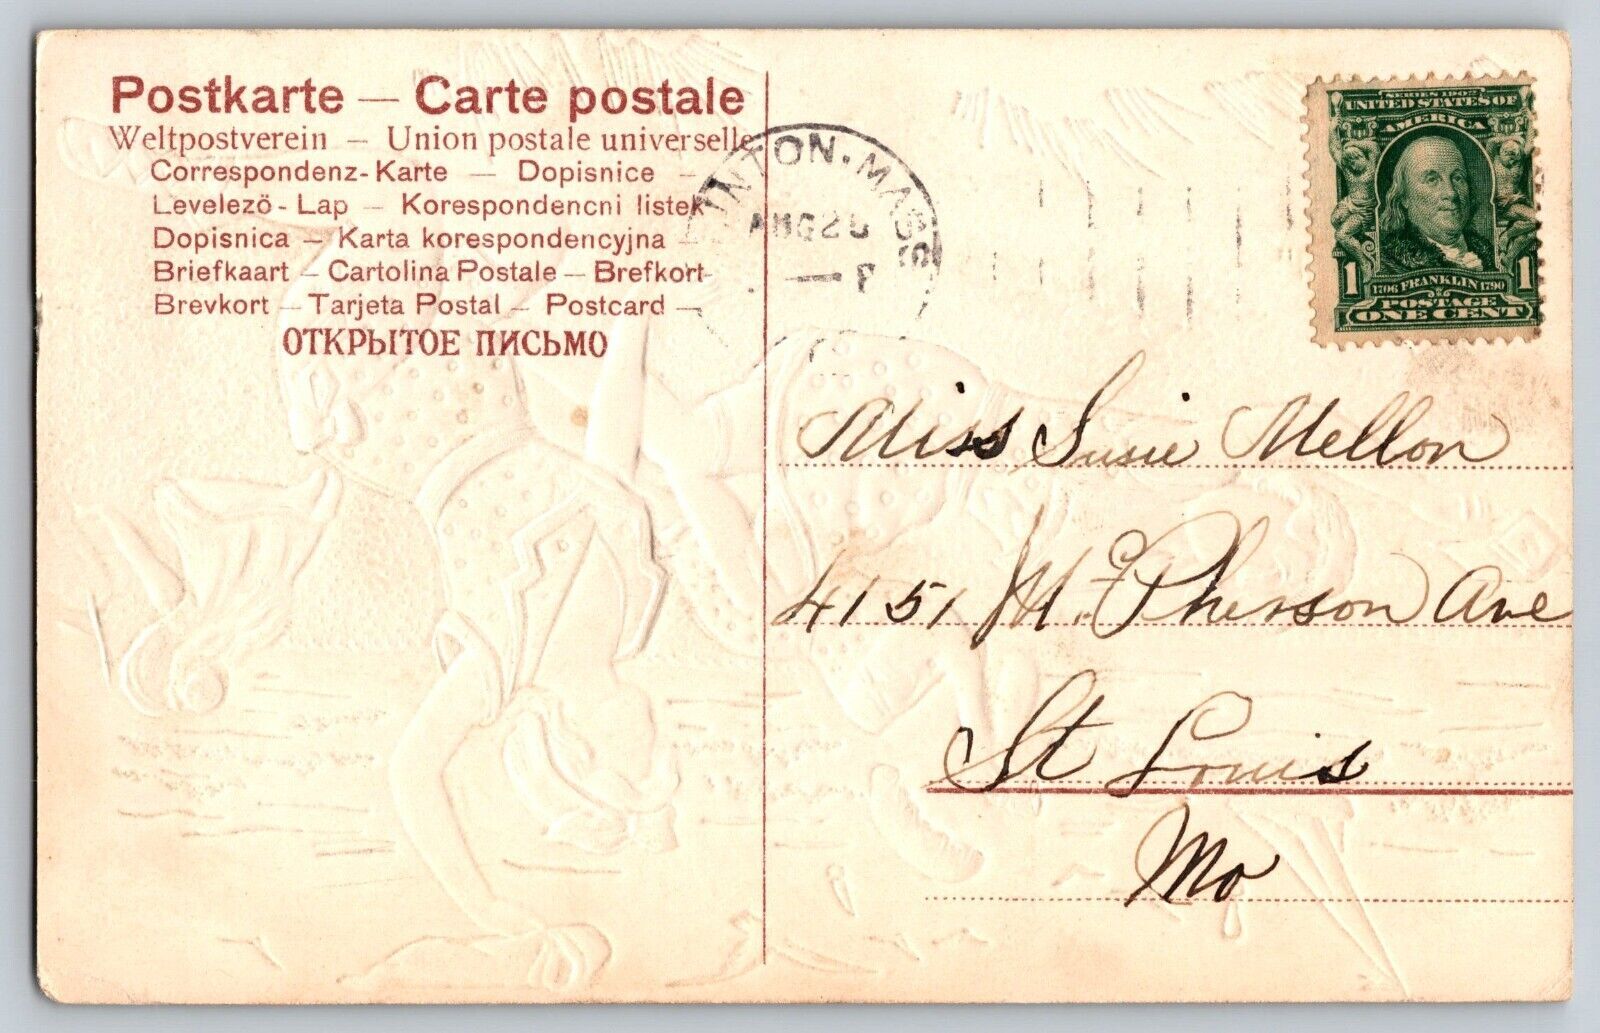 Postkarte — Carte postale
Weltpostverein — Union postale universelle
Correspondenz-Karte — Dopisnice —
Levelező-Lap — Korespondencni listek
Dopisnica — Karta korespondencyjna —
Briefkaart — Cartolina Postale — Brefkort
Brevkort — Tarjeta Postal — Postcard —
ОТКРЫТОЕ ПИСЬМО
MASS.
AUG
SERIES 1902
UNITED STATES OF
AMERICA
1 1
1706 FRANKLIN 1790
POSTAGE
ONE CENT
Miss Susie Mellon
4151 McPherson Ave
St Louis
Mo